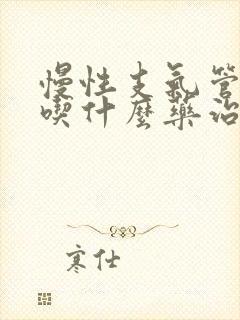 慢性支氣管
喫什麼藥治
寒仕